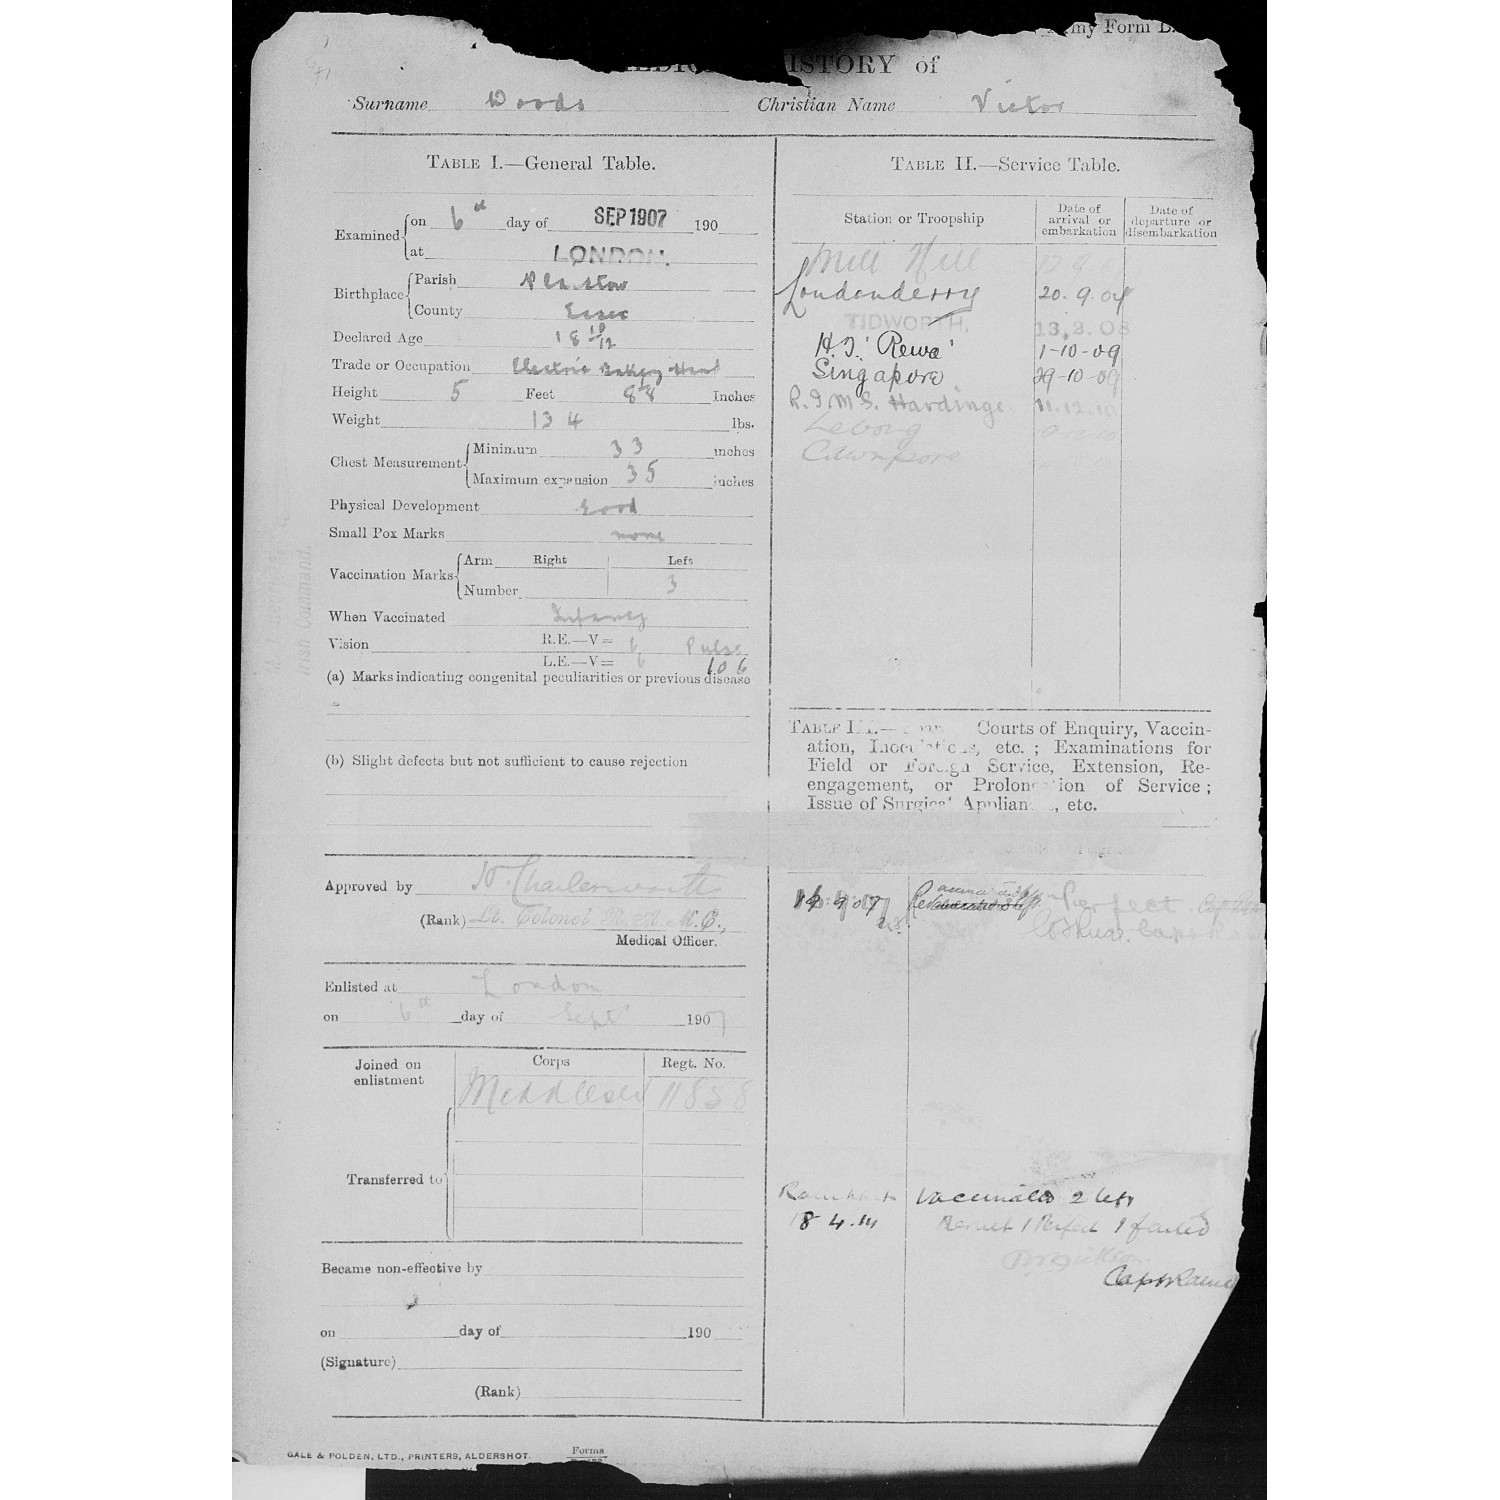 my Form B.
HISTORY of
Surname Woods Christian Name Victor
TABLE I.—General Table.
Examined on 6th day of SEP 1907 190
at LONDON.
Birthplace Parish Plaistow
County Essex
Declared Age 18 10/12
Trade or Occupation Electric Battery Hand
Height 5 Feet 8 Inches
Weight 134 lbs.
Chest Measurement Minimum 33 inches
Maximum expansion 35 inches
Physical Development Good
Small Pox Marks none
Vaccination Marks Arm Right Left
Number 3
When Vaccinated Infancy
Vision R.E.—V= 6 Pulse
L.E.—V= 6 106
(a) Marks indicating congenital peculiarities or previous disease
(b) Slight defects but not sufficient to cause rejection
Approved by W. Charlesworth
(Rank) Lt. Colonel R.A.M.C.,
Medical Officer.
Enlisted at London
on 6th day of Sept 1907
Joined on enlistment Corps Regt. No.
Middlesex 11858
Transferred to
Became non-effective by
on day of 190
(Signature)
(Rank)
GALE & POLDEN, LTD., PRINTERS, ALDERSHOT.
Forms
Irish Command.
TABLE II.—Service Table.
Station or Troopship
Date of arrival or embarkation
Date of departure or disembarkation
Mill Hill
Londonderry 20.9.07
TIDWORTH. 13.2.08
H.T. 'Rewa' 1-10-09
Singapore 29-10-09
R.I.M.S. Hardinge 11.12.10
Lebong
Cawnpore
TABLE III.— Courts of Enquiry, Vaccin-
ation, Inoculations, etc. ; Examinations for
Field or Foreign Service, Extension, Re-
engagement, or Prolongation of Service ;
Issue of Surgical Appliances, etc.
9 07 Perfect
Ranikhet Vaccinated 2 left
18.4.14 Result 1 Perfect 1 failed
Capt RAMC